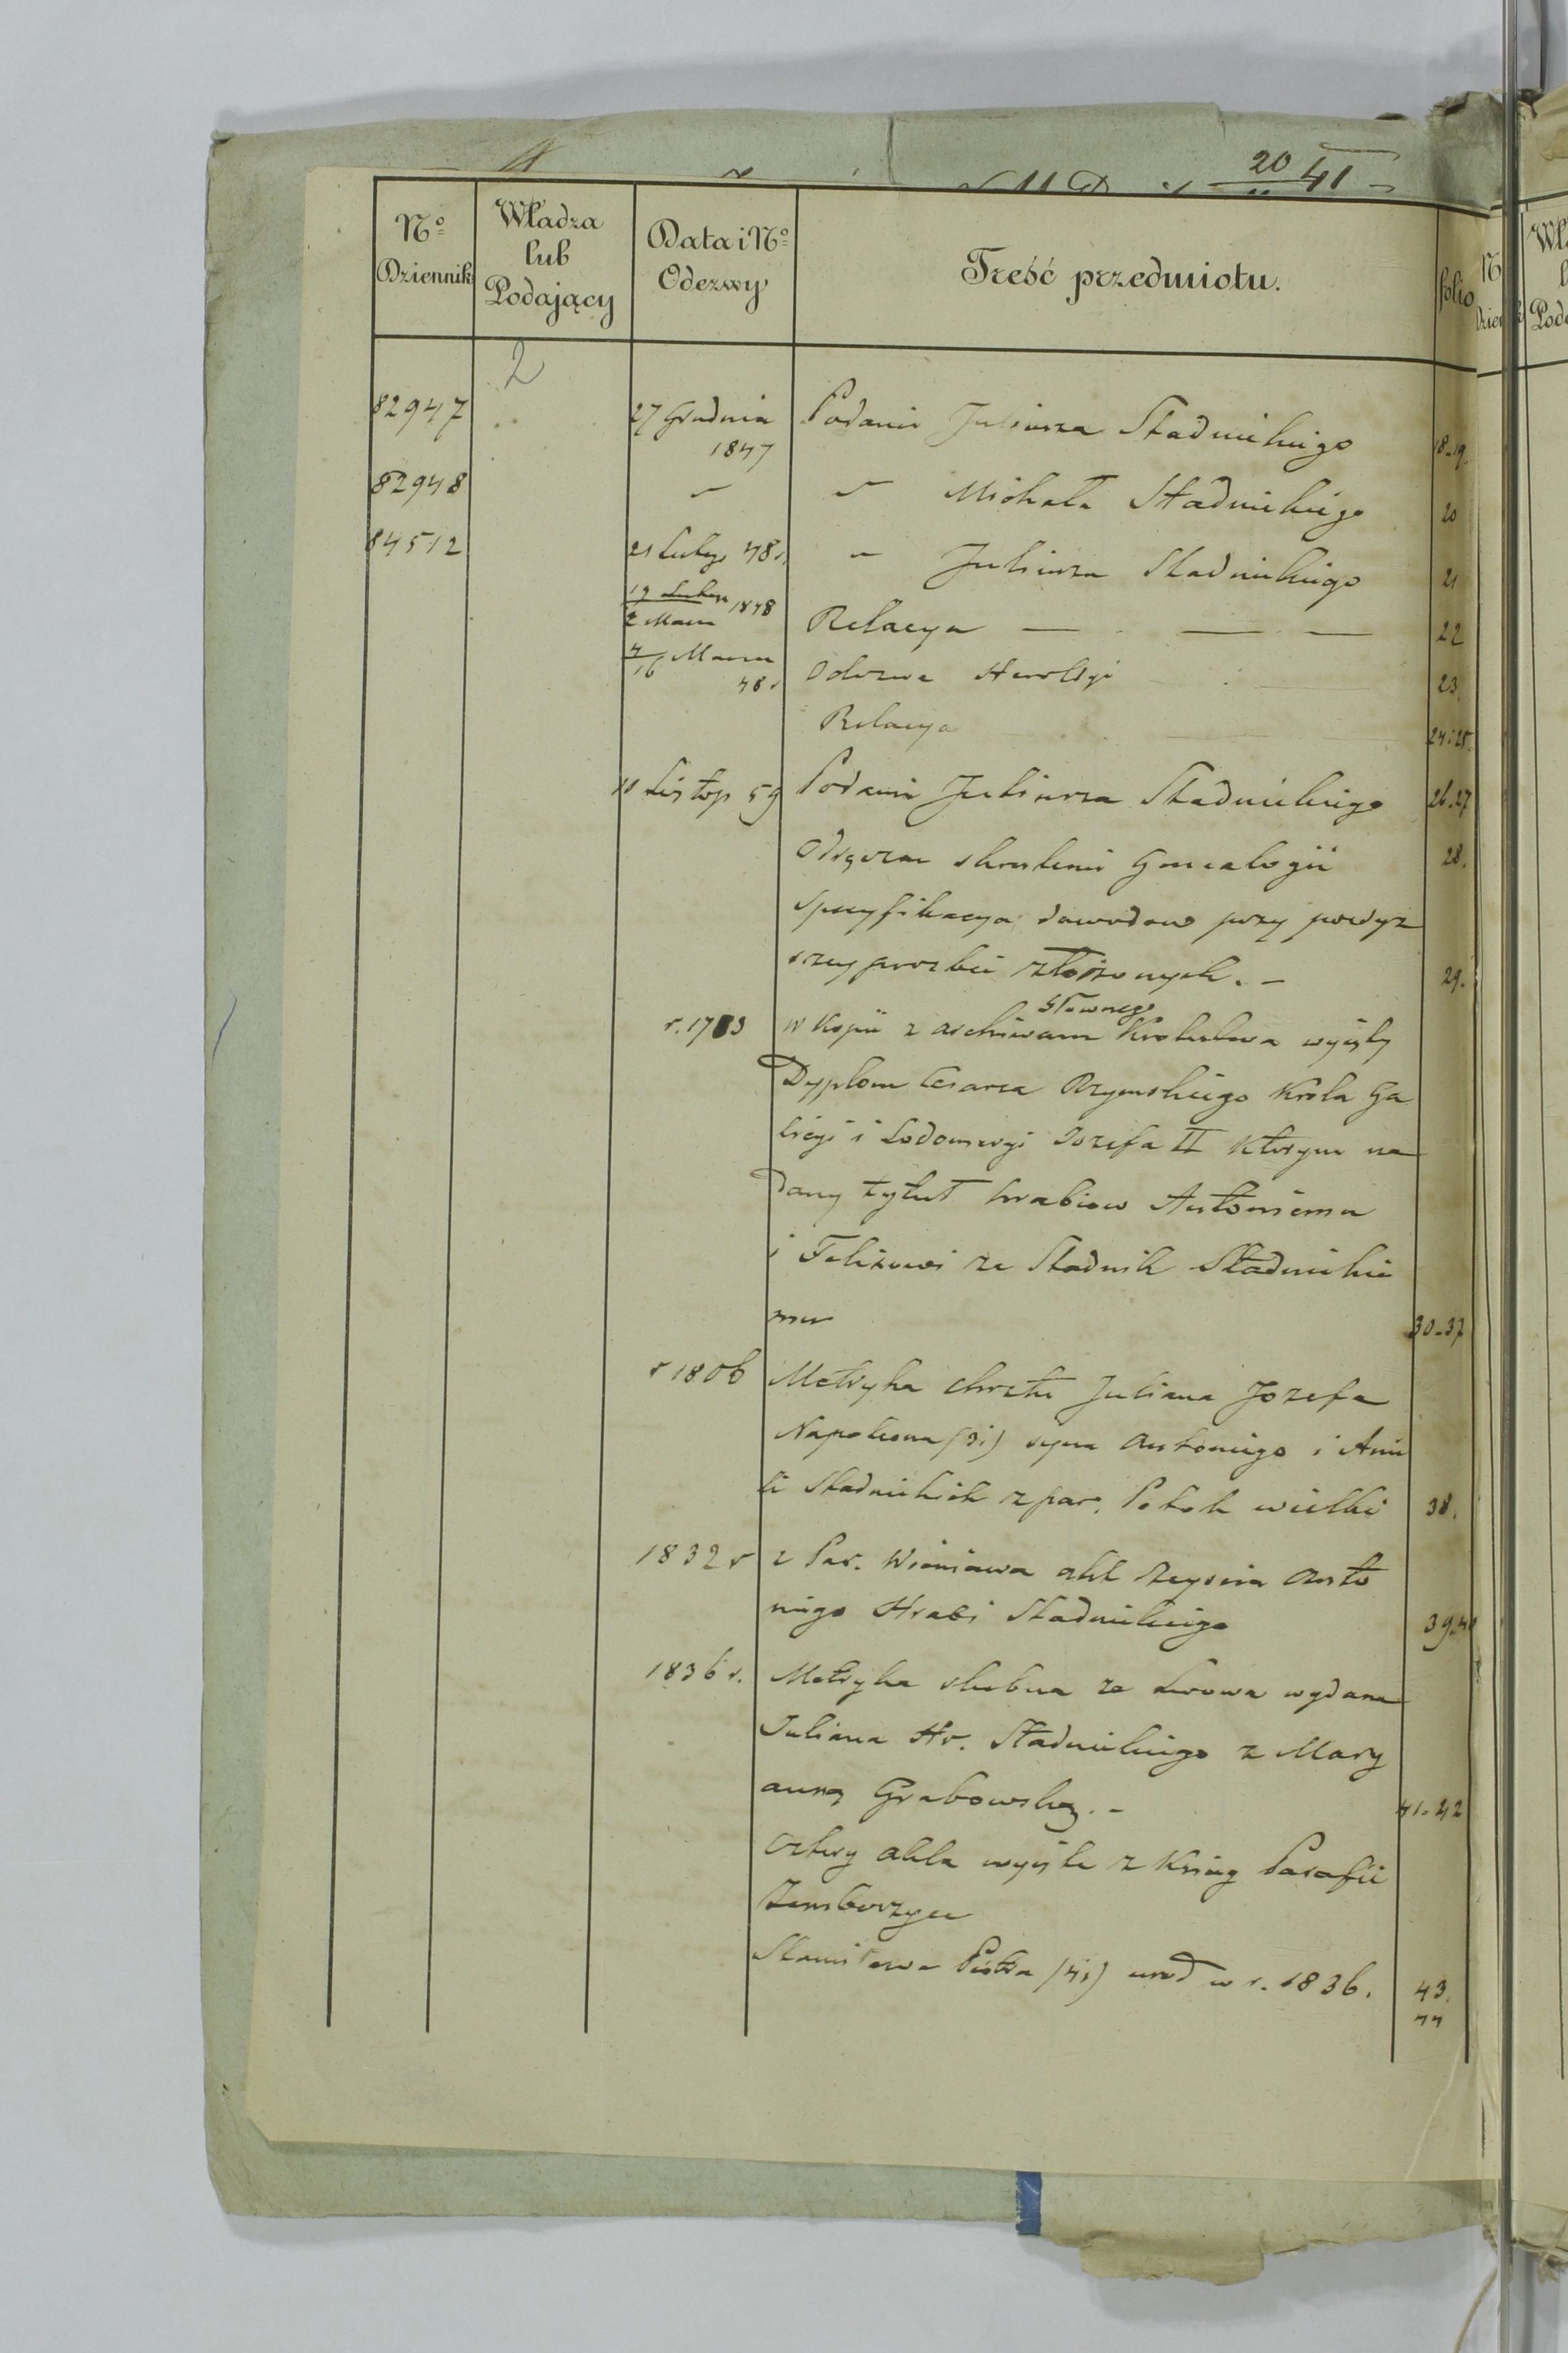 20 41
No Dziennik
Władza lub Podający
Data i No Odezwy
Treść przedmiotu.
folio
2
82947 27 Grudnia 1847 Podanie Juliusza Stadnickiego 18-19.
82948 " " Michała Stadnickiego 20
84512 21 Lutego 48 r. " Juliusza Stadnickiego 21
19 Lutego / 2 Marca 1848 Relacya — — — 22
4/16 Marca 48 r Odezwa Heroldyi 23.
Relacya 24:25.
Listop 59 Podanie Juliusza Stadnickiego 26.27
Odręczne skreślenie Genealogii 28.
Specyfikacya dowodow przy powyz
szey prozbie złożonych. - 29.
r. 1783 w kopii z archiwum głownego Krolestwa wyięty
Dyplom Cesarza Rzymskiego Krola Ga
licyi i Lodomeryi Jozefa II ktorym na
dany tytuł hrabiow Antoniemu
i Felixowi ze Stadnik Stadnickie
mu 30-37
r 1806 Metryka chrztu Juliana Jozefa
Napoleona (3i) syna Antoniego i Anie
li Stadnickich z par. Potok wielki 38.
1832 r z Par. Wieniawa akt Zeyscia Anto
niego Hrabi Stadnickiego 39.40
1836 r. Metryka slubna ze Lwowa wydana
Juliana Hr. Stadnickiego z Mary
anną Grabowską. - 41-42
Cztery akta wyięte z Ksiąg Parafii
Zemborzyce
Stanisława Piotra (4i) urod w r. 1836. 43.
44